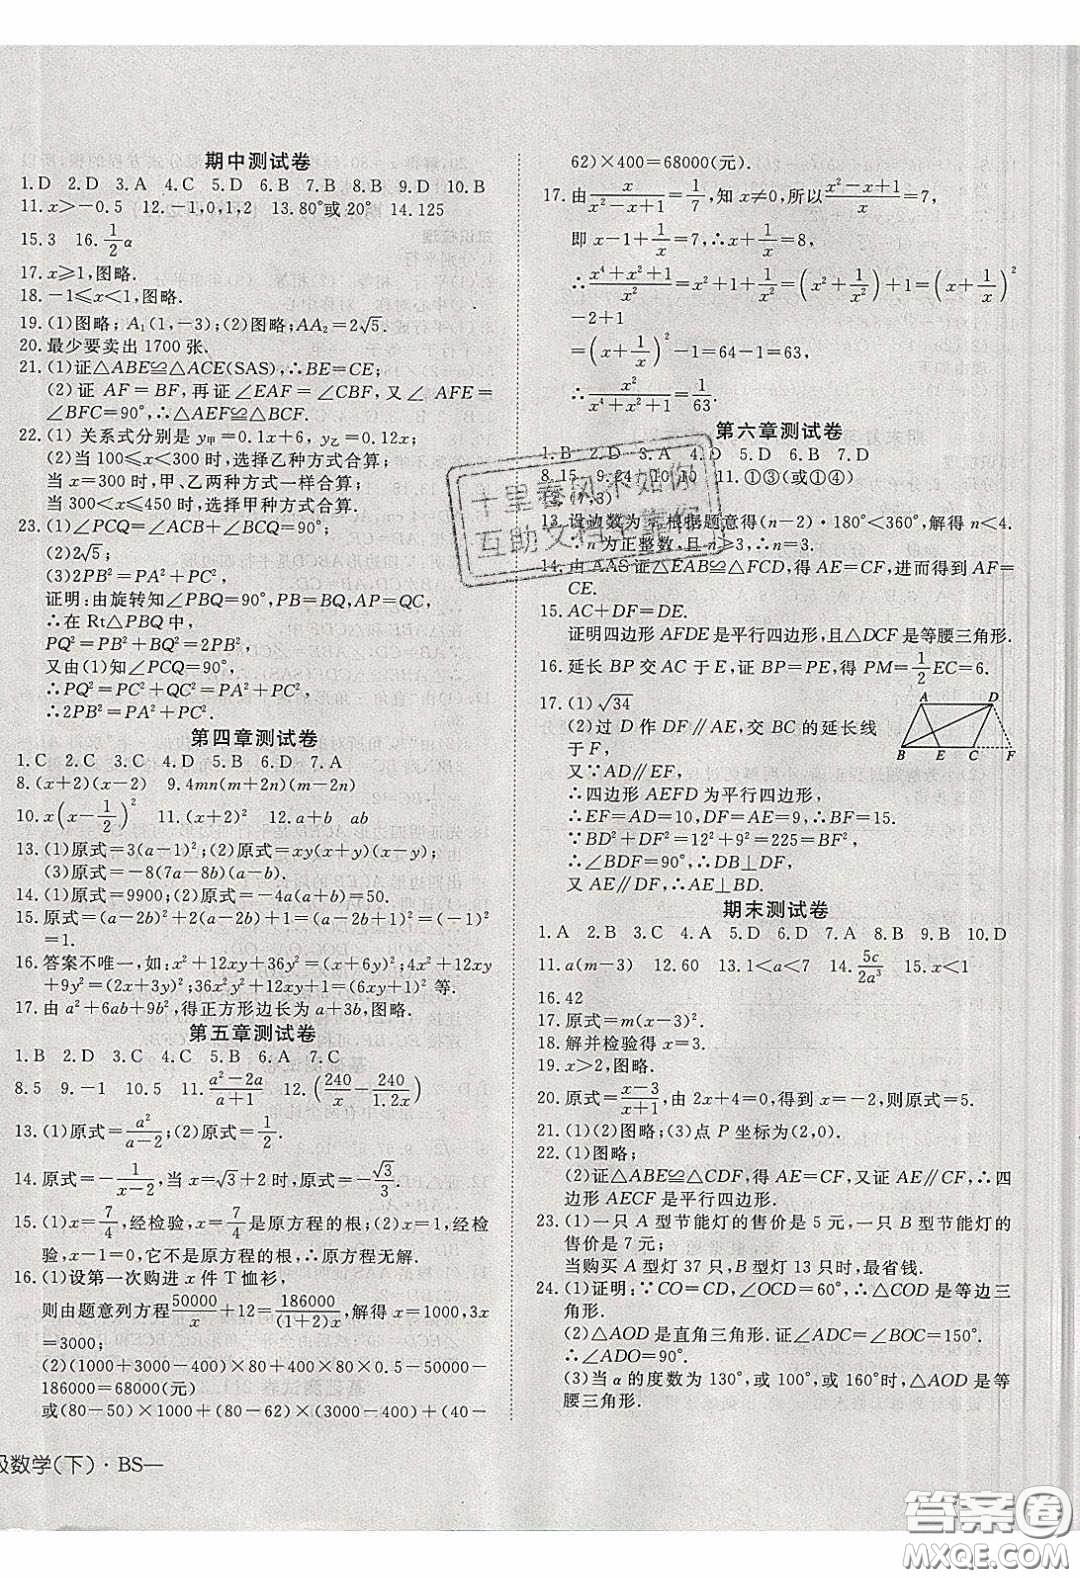 期中测试卷
1.D 2.D 3.A 4.C 5.D 6.B 7.B 8.B 9.D 10.B
11.x>-0.5 12.-1,0,1,2 13.80°或20° 14.125
15.3 16.1/2 α
17.x⩾1,图略.
18.-1⩽x<1,图略.
19.(1)图略;A₁(1,-3);(2)图略;AA₂=2√5.
20.最少要卖出1700张.
21.(1)证△ABE≌△ACE(SAS),∴BE=CE;
(2)证 AF=BF,再证∠EAF=∠CBF,又∠AFE
=∠BFC=90°,∴△AEF≌△BCF.
22.(1)关系式分别是y甲=0.1x+6,y乙=0.12x;
(2)当100⩽x<300时,选择乙种方式合算;
当x=300时,甲、乙两种方式一样合算;
当300<x⩽450时,选择甲种方式合算.
23.(1)∠PCQ=∠ACB+∠BCQ=90°;
(2)2√5;
(3)2PB²=PA²+PC²,
证明:由旋转知∠PBQ=90°,PB=BQ,AP=QC,
∴在Rt△PBQ中,
PQ²=PB²+BQ²=2PB²,
又由(1)知∠PCQ=90°,
∴PQ²=PC²+QC²=PA²+PC²,
∴2PB²=PA²+PC².
第四章测试卷
1.C 2.C 3.C 4.D 5.B 6.D 7.A
8.(x+2)(x-2) 9.4mn(m+2n)(m-2n)
10.x(x-1/2)² 11.(x+2)² 12.a+b ab
13.(1)原式=3(a-1)²;(2)原式=xy(x+y)(x-y);
(3)原式=-8(7a-8b)(a-b).
14.(1)原式=9900;(2)原式=-4a(a+b)=50.
15.原式=(a-2b)²+2(a-2b)+1=(a-2b+1)²=(-1)²
=1.
16.答案不唯一,如:x²+12xy+36y²=(x+6y)²;4x²+12xy
+9y²=(2x+3y)²;36x²y²+12xy+1=(6xy+1)²等.
17.由a²+6ab+9b²,得正方形边长为a+3b,图略.
第五章测试卷
1.B 2.D 3.C 4.C 5.B 6.A 7.C
8.5 9.-1 10.5 11.(a²-2a)/(a+1) 12.(240/x-240/1.2x)
13.(1)原式=a²/(a-2);(2)原式=1/2.
14.原式=-1/(x-2),当x=√3+2时,原式=-√3/3.
15.(1)x=7/4,经检验,x=7/4是原方程的根;(2)x=1,经检
验,x-1=0,它不是原方程的根,∴原方程无解.
16.(1)设第一次购进x件T恤衫,
则由题意列方程50000/x+12=186000/(1+2)x,解得x=1000,3x
=3000;
(2)(1000+3000-400)×80+400×80×0.5-50000-
186000=68000(元)
或(80-50)×1000+(80-62)×(3000-400)+(40-
62)×400=68000(元).
17.由x/(x²-x+1)=1/7,知x≠0,所以(x²-x+1)/x=7,
即x-1+1/x=7,∴x+1/x=8,
∴(x⁴+x²+1)/x²=x²+1+1/x²=(x²+1/x²)+1=(x+1/x)²
-2+1
=(x+1/x)²-1=64-1=63,
∴x²/(x⁴+x²+1)=1/63.
第六章测试卷
1.B 2.D 3.A 4.D 5.D 6.B 7.D
8.15 9.24 10.10 11.①③(或①④)
12.(7,3)
13.设边数为n,根据题意得(n-2)·180°<360°,解得n<4.
∴n为正整数,且n⩾3,∴n=3.
14.由AAS证△EAB≌△FCD,得AE=CF,进而得到AF=
CE.
15.AC+DF=DE.
证明四边形AFDE是平行四边形,且△DCF是等腰三角形.
16.延长BP交AC于E,证BP=PE,得PM=1/2EC=6.
17.(1)√34
(2)过D作DF∥AE,交BC的延长线
于F,
又∵AD∥EF,
∴四边形AEFD为平行四边形,
∴EF=AD=10,DF=AE=9,∴BF=15.
∵BD²+DF²=12²+9²=225=BF²,
∴∠BDF=90°,∴BD⊥DF,
又AE∥DF,∴AE⊥BD.
A D
B E C F
期末测试卷
1.A 2.B 3.C 4.A 5.D 6.D 7.A 8.B 9.B 10.D
11.a(m-3) 12.60 13.1<a<7 14.5c/2a³ 15.x<1
16.42
17.原式=m(x-3)².
18.解并检验得x=3.
19.x>2,图略.
20.原式=(x-3)/(x+1),由2x+4=0,得到x=-2,则原式=5.
21.(1)(2)图略;(3)点P坐标为(2,0).
22.(1)图略;
(2)证△ABE≌△CDF,得AE=CF,又证AE∥CF,∴四
边形AECF是平行四边形.
23.(1)一只A型节能灯的售价是5元,一只B型节能灯的
售价是7元;
当购买A型灯37只,B型灯13只时,最省钱.
24.(1)证明:∵CO=CD,∠OCD=60°,∴△COD是等边三
角形.
(2)△AOD是直角三角形.证∠ADC=∠BOC=150°.
∴∠ADO=90°.
(3)当α的度数为130°,或100°,或160°时,△AOD是等
腰三角形.
级数学(下)·BS—
十里春风不如你
互助文档
答案圈
MXQE.COM